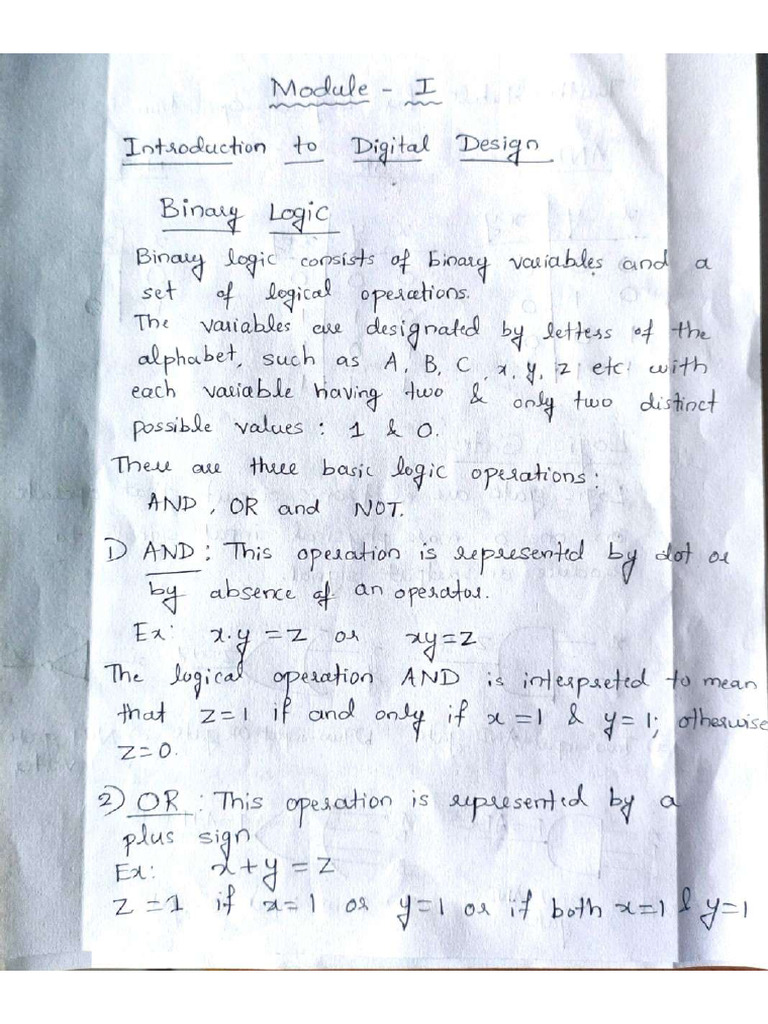 Module - I
Introduction to Digital Design
Binary Logic
Binary logic consists of binary variables and a
set of logical operations.
The variables are designated by letters of the
alphabet, such as A, B, C, x, y, z etc with
each variable having two & only two distinct
possible values: 1 & 0.
There are three basic logic operations:
AND, OR and NOT.
1) AND: This operation is represented by dot or
by absence of an operator.
Ex: x.y = z or xy=z
The logical operation AND is interpreted to mean
that z=1 if and only if x=1 & y=1; otherwise
z=0.
2) OR: This operation is represented by a
plus sign
Ex: x+y=z
z=1 if x=1 or y=1 or if both x=1 & y=1